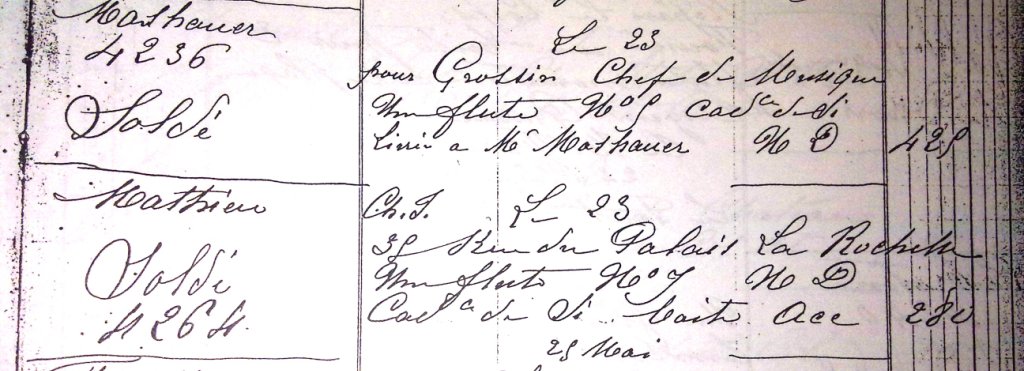 Mathauer
4236
Soldé
Le 23
pour Grossin Chef de Musique
Une flute No 5 cadce de si
Livrée a Mr Mathauer N D 425
Mathieu
Soldé
4264
Ch. S. Le 23
35 Rue du Palais La Rochelle
Une flute No 7 N D
Cadca de Si boite Acc 280
25 Mai